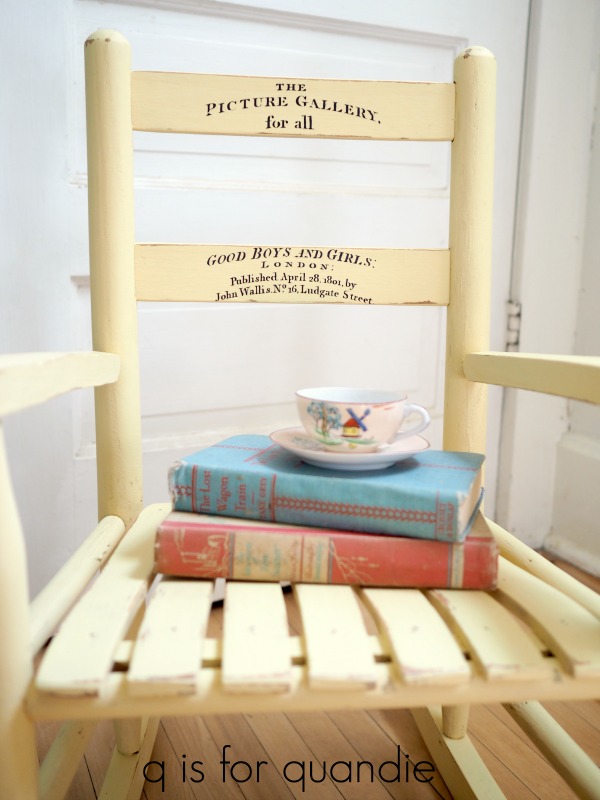 THE
PICTURE GALLERY,
for all
GOOD BOYS AND GIRLS:
LONDON:
Published April 28, 1801, by
John Wallis. Nº 16, Ludgate Street
The Lost
Wagon
Train
ZANE GREY
q is for quandie